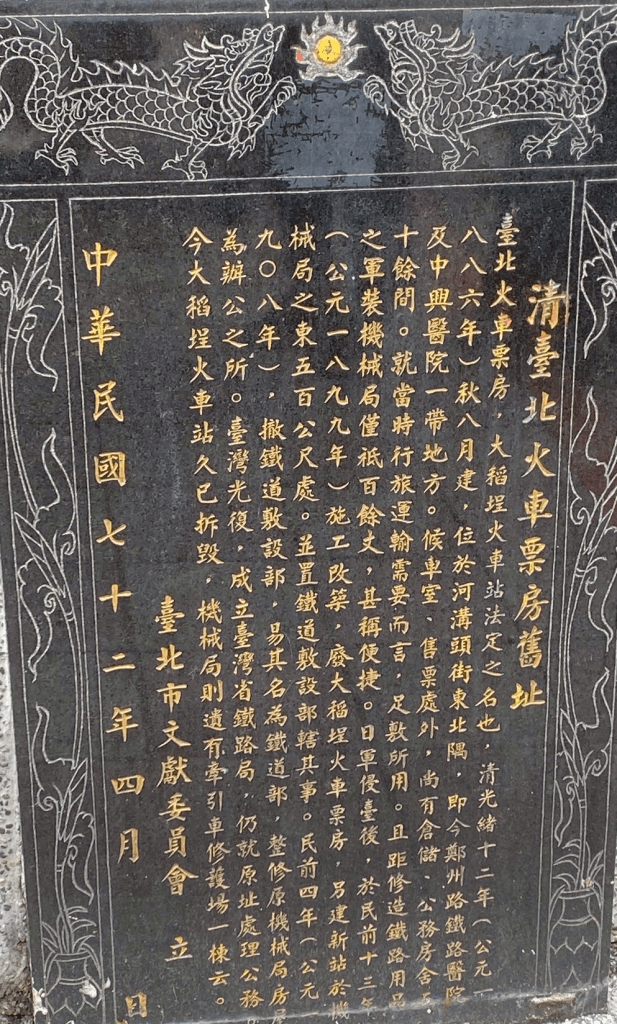 清臺北火車票房舊址
臺北火車票房，大稻埕火車站法定之名也，清光緒十二年（公元一
八八六年）秋八月建，位於河溝頭街東北隅，即今鄭州路鐵路醫院
及中興醫院一帶地方。候車室、售票處外，尚有倉儲、公務房舍五
十餘間。就當時行旅運輸需要而言，足敷所用。且距修造鐵路用品
之軍裝機械局僅祇百餘丈，甚稱便捷。日軍侵臺後，於民前十三年
（公元一八九九年）施工改築，廢大稻埕火車票房，另建新站於機
械局之東五百公尺處。並置鐵道敷設部轄其事。民前四年（公元一
九〇八年），撤鐵道敷設部，易其名為鐵道部，整修原機械局房屋
為辦公之所。臺灣光復，成立臺灣省鐵路局，仍就原址處理公務。
今大稻埕火車站久已拆毀，機械局則遺有牽引車修護場一棟云。
臺北市文獻委員會 立
中華民國七十二年四月 日